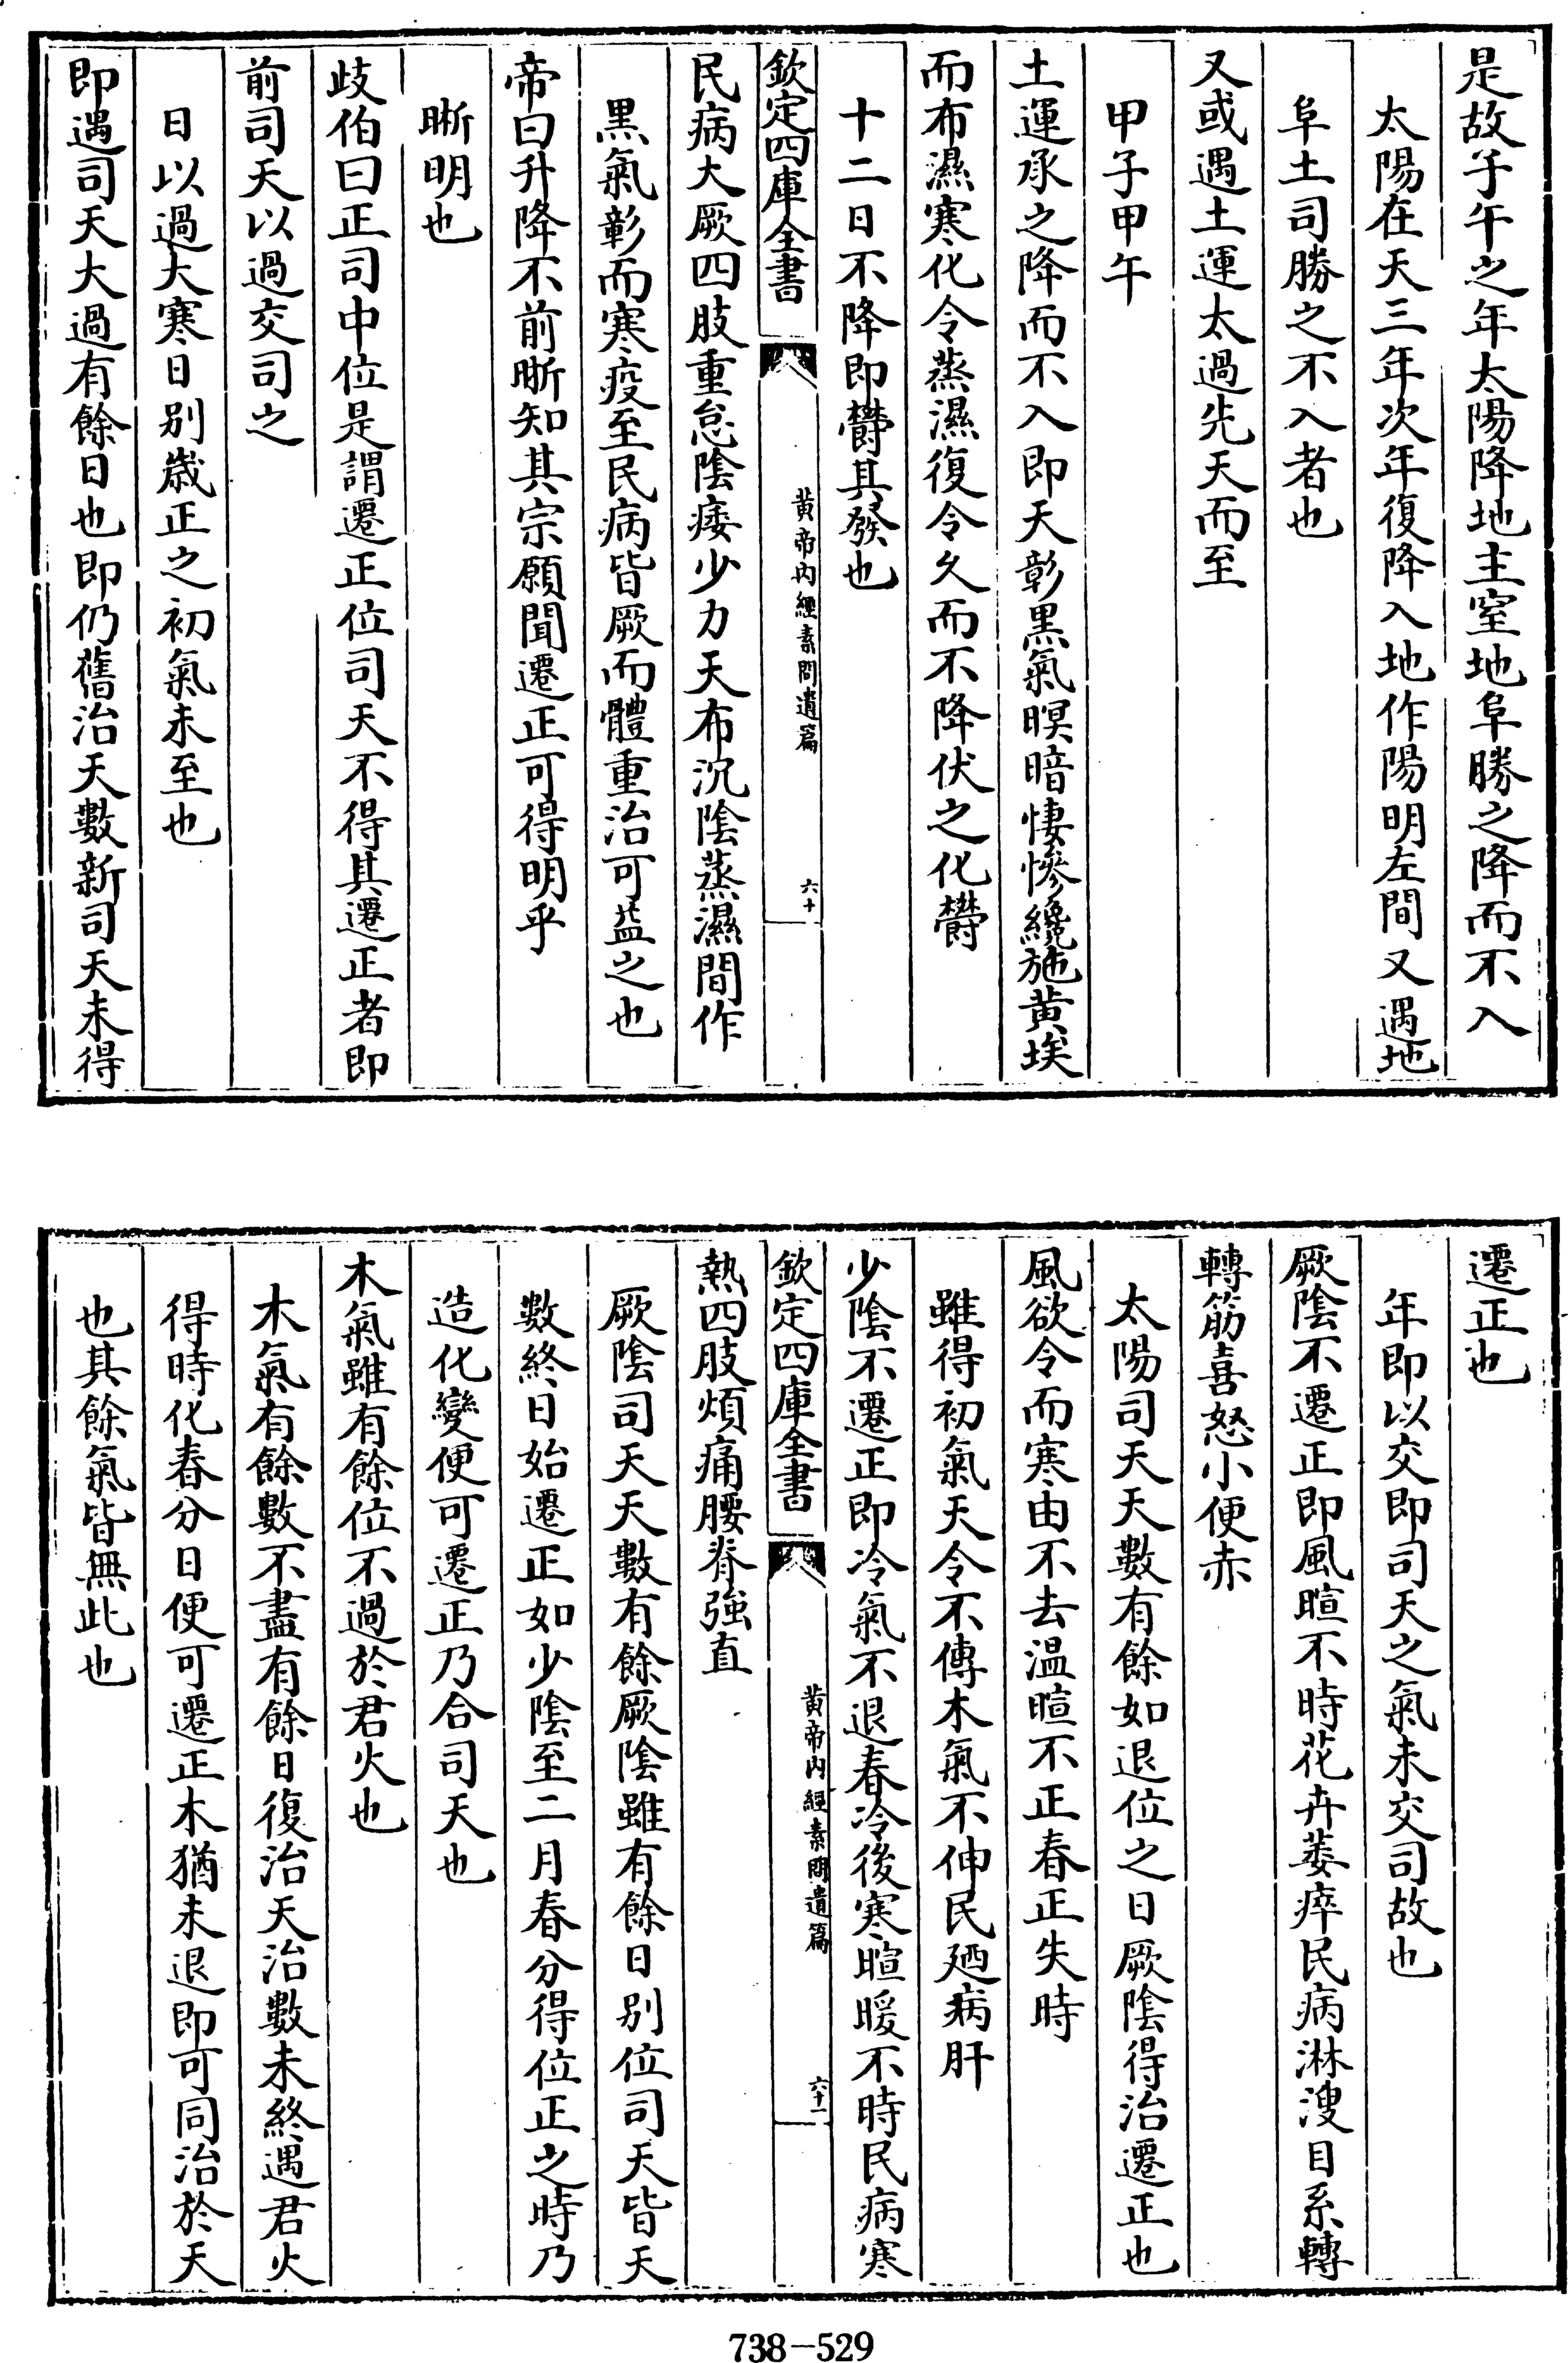 是故子午之年太陽降地主窒地阜勝之降而不入
太陽在天三年次年復降入地作陽明左間又遇地
阜土司勝之不入者也
又或遇土運太過先天而至
甲子甲午
土運承之降而不入即天彰黒氣暝暗悽慘纔施黄埃
而布濕寒化令蒸濕復令久而不降伏之化欝
十二日不降即欝其發也
欽定四庫全書
黄帝内經素問遺篇
六十
民病大厥四肢重怠陰痿少力天布沉陰蒸濕間作
黒氣彰而寒疫至民病皆厥而體重治可益之也
帝曰升降不前晣知其宗願聞遷正可得明乎
晣明也
歧伯曰正司中位是謂遷正位司天不得其遷正者即
前司天以過交司之
日以過大寒日别歳正之初氣未至也
即遇司天大過有餘日也即仍舊治天數新司天未得
遷正也
年即以交即司天之氣未交司故也
厥隂不遷正即風暄不時花卉萎瘁民病淋溲目系轉
轉筋喜怒小便赤
太陽司天天數有餘如退位之日厥陰得治遷正也
風欲令而寒由不去温暄不正春正失時
雖得初氣天令不傳木氣不伸民廼病肝
少隂不遷正即冷氣不退春冷後寒暄暖不時民病寒
欽定四庫全書
黄帝内經素問遺篇
六十一
熱四肢煩痛腰脊強直
厥隂司天天數有餘厥陰雖有餘日别位司天皆天
數終日始遷正如少陰至二月春分得位正之時乃
造化變便可遷正乃合司天也
木氣雖有餘位不過於君火也
木氣有餘數不盡有餘日復治天治數未終遇君火
得時化春分日便可遷正木猶未退即可同治於天
也其餘氣皆無此也
738-529